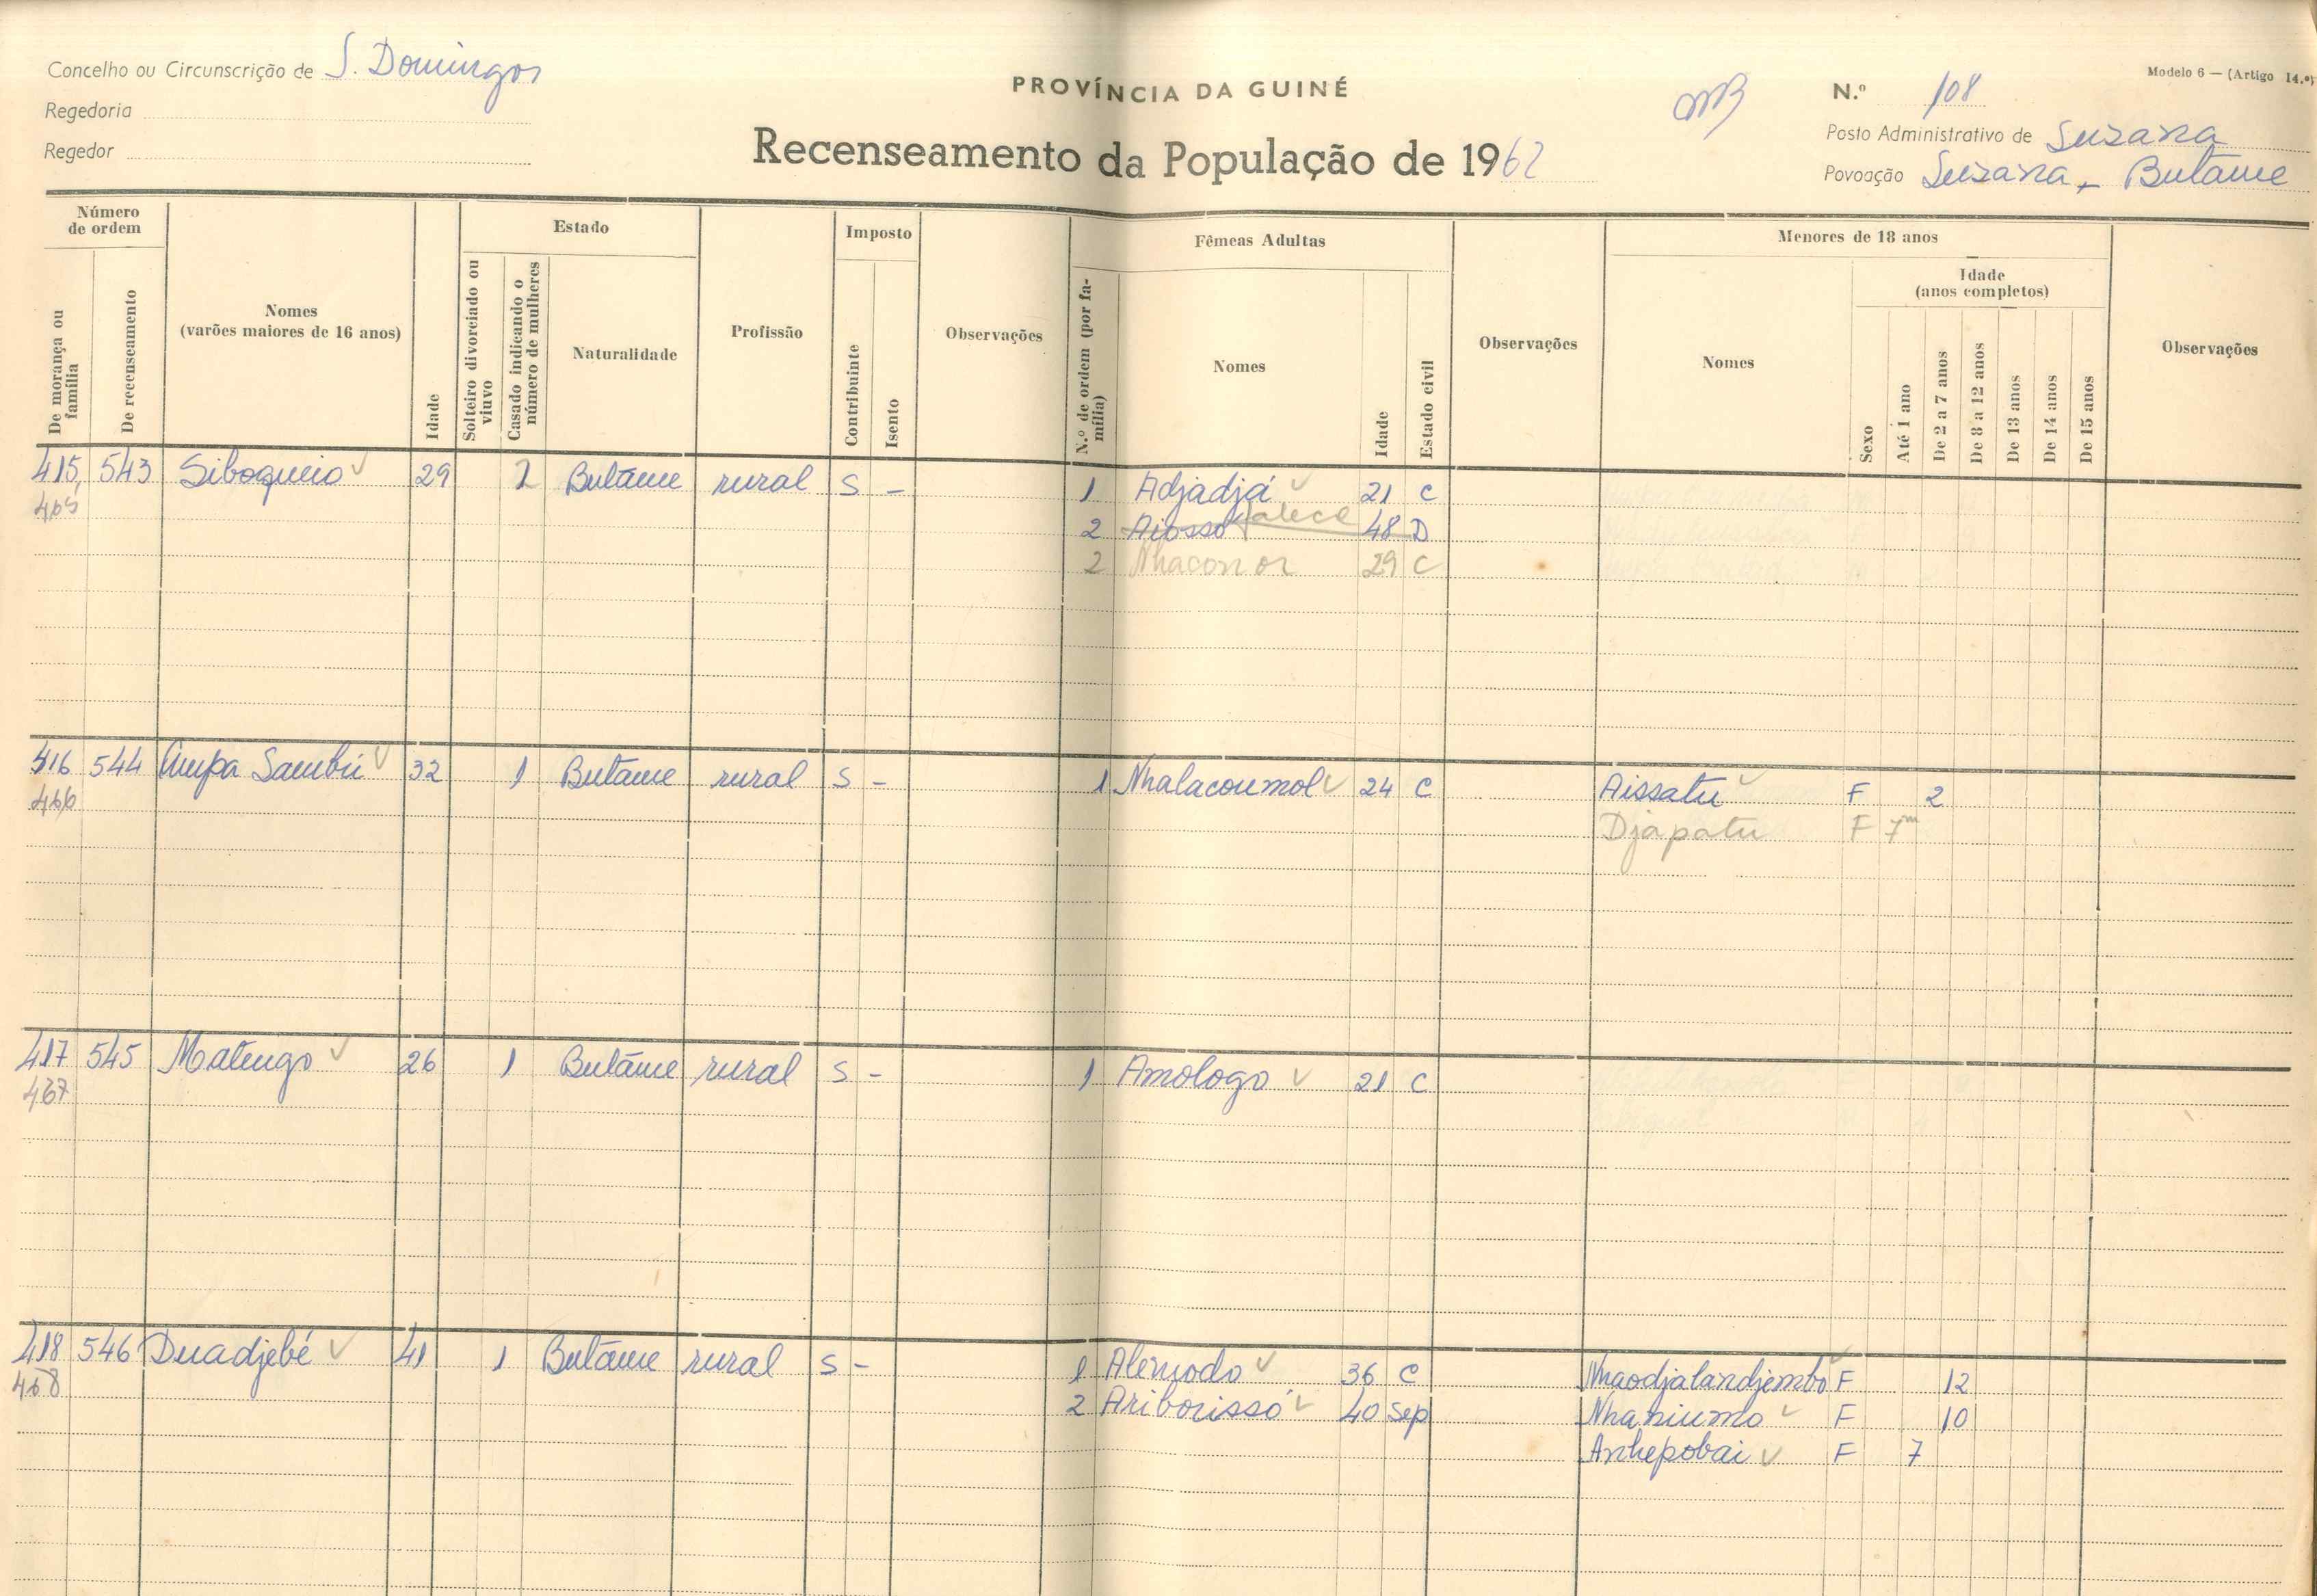 Concelho ou Circunscrição de S. Domingos
Regedoria
Regedor
PROVÍNCIA DA GUINÉ
Recenseamento da População de 1962
Modelo 6 — (Artigo 14.º)
N.º 108
Posto Administrativo de Suzana
Povoação Suzana - Butame
Número de ordem
De morança ou família
De recenseamento
Nomes
(varões maiores de 16 anos)
Idade
Estado
Solteiro divorciado ou viuvo
Casado indicando o número de mulheres
Naturalidade
Profissão
Imposto
Contribuinte
Isento
Observações
Fêmeas Adultas
N.º de ordem (por família)
Nomes
Idade
Estado civil
Observações
Menores de 18 anos
Nomes
Idade
(anos completos)
Sexo
Até 1 ano
De 2 a 7 anos
De 8 a 12 anos
De 13 anos
De 14 anos
De 15 anos
Observações
415 543 Siboqueio 29 2 Butame rural S - 1 Adjadjá 21 C
465 2 Aiosso falece 48 D
2 Nhaconor 29 C
416 544 Ampa Sambú 32 1 Butame rural S - 1 Nhalacoumol 24 C Aissatu F 2
466 Djapatu F 7m
417 545 Matengo 26 1 Butame rural S - 1 Amologo 21 C
467
418 546 Duadjebé 41 1 Butame rural S - 1 Alemodo 36 C Nhaodjalandjembo F 12
468 2 Ariborissó 40 Sep Nhaniumo F 10
Anhepobai F 7